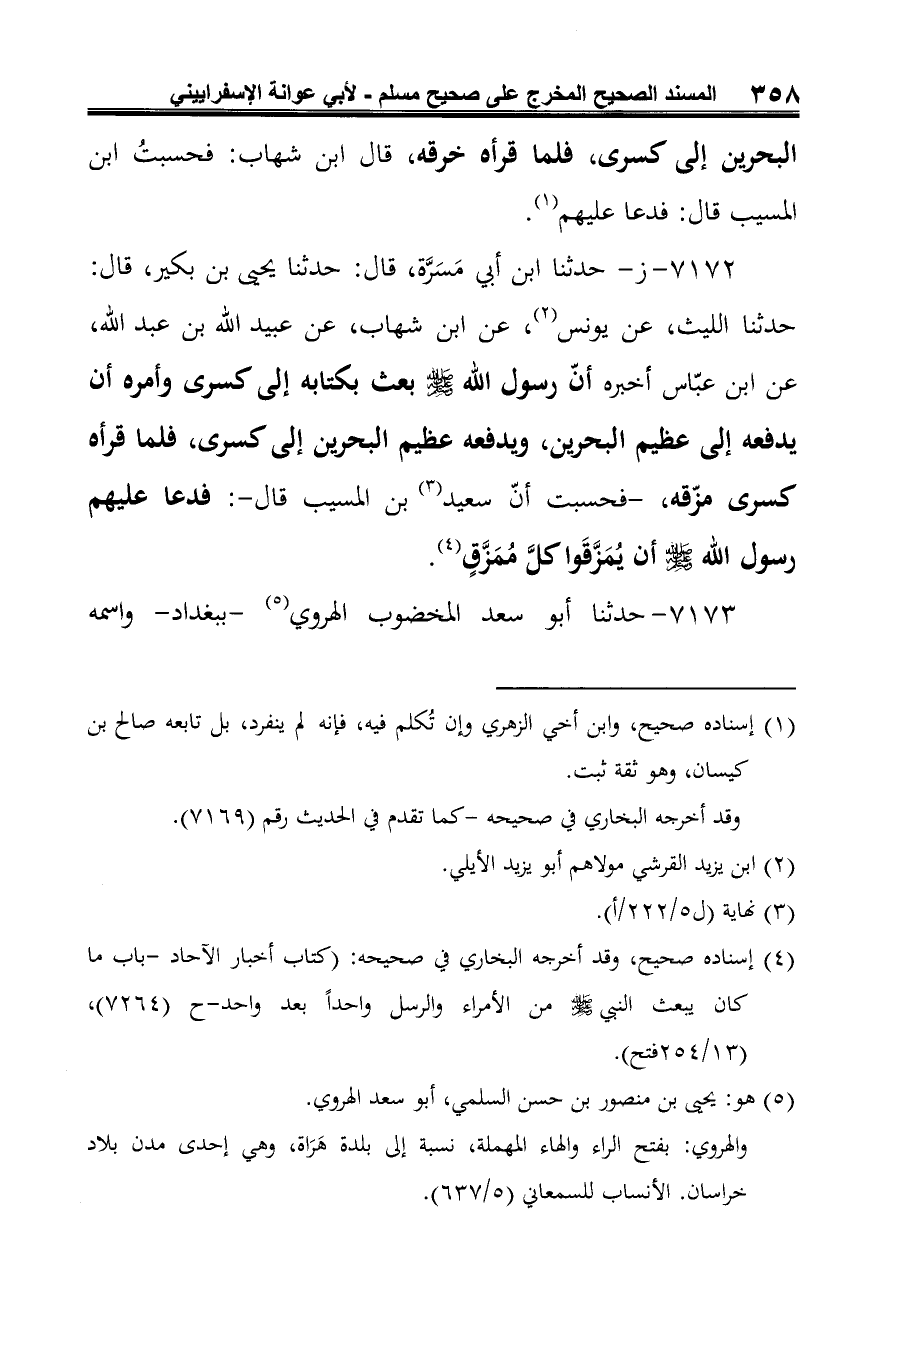 ٣٥٨ المسند الصحيح المخرج على صحيح مسلم - لأبي عوانة الإسفراييني
البحرين إلى كسرى، فلما قرأه خرقه، قال ابن شهاب: فحسبتُ ابن
المسيب قال: فدعا عليهم(١).
٧١٧٢-ز- حدثنا ابن أبي مَسَرَّة، قال: حدثنا يحيى بن بكير، قال:
حدثنا الليث، عن يونس(٢)، عن ابن شهاب، عن عبيد الله بن عبد الله،
عن ابن عبّاس أخبره أنّ رسول الله ﷺ بعث بكتابه إلى كسرى وأمره أن
يدفعه إلى عظيم البحرين، ويدفعه عظيم البحرين إلى كسرى، فلما قرأه
كسرى مزّقه، -فحسبت أنّ سعيد(٣) بن المسيب قال-: فدعا عليهم
رسول الله ﷺ أن يُمَزَّقَوا كلَّ مُمَزَّقٍ(٤).
٧١٧٣-حدثنا أبو سعد المخضوب الهروي(٥) -ببغداد- واسمه
(١) إسناده صحيح، وابن أخي الزهري وإن تُكلم فيه، فإنه لم ينفرد، بل تابعه صالح بن
كيسان، وهو ثقة ثبت.
وقد أخرجه البخاري في صحيحه -كما تقدم في الحديث رقم (٧١٦٩).
(٢) ابن يزيد القرشي مولاهم أبو يزيد الأيلي.
(٣) نهاية (ل٢٢٢/٥/أ).
(٤) إسناده صحيح، وقد أخرجه البخاري في صحيحه: (كتاب أخبار الآحاد -باب ما
كان يبعث النبي ﷺ من الأمراء والرسل واحداً بعد واحد-ح (٧٢٦٤)،
(٢٥٤/١٣فتح).
(٥) هو: يحيى بن منصور بن حسن السلمي، أبو سعد الهروي.
والهروي: بفتح الراء والهاء المهملة، نسبة إلى بلدة هَرَاة، وهي إحدى مدن بلاد
خراسان. الأنساب للسمعاني (٦٣٧/٥).